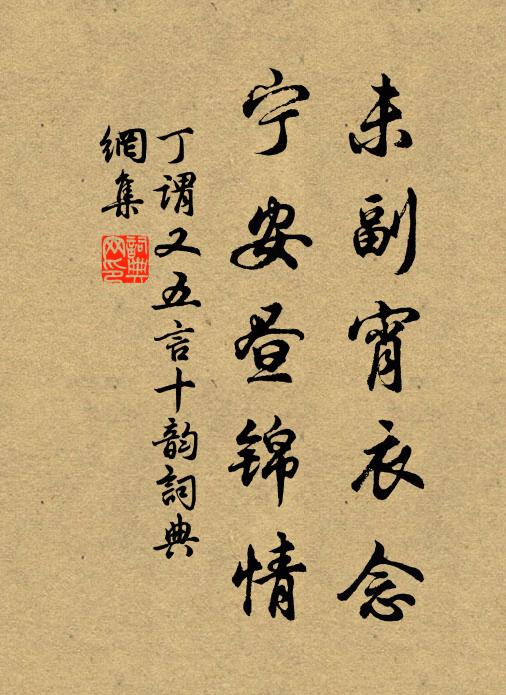 未副宵衣念
宁安昼锦情
丁谓又五言十韵詞典
網集
詞典
网印